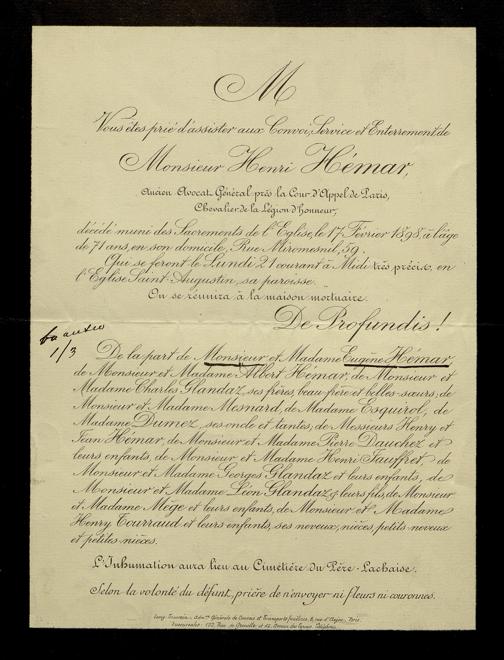 M
Vous êtes prié d'assister aux Convoi, Service et Enterrement de
Monsieur Henri Hémar,
Ancien Avocat Général près la Cour d'Appel de Paris,
Chevalier de la Légion d'honneur,
décédé muni des Sacrements de l'Eglise, le 17 Février 1898, à l'âge
de 71 ans, en son domicile, Rue Miromesnil, 59.
Qui se feront le Lundi 21 courant à Midi très précis, en
l'Eglise Saint-Augustin, sa paroisse.
On se réunira à la maison mortuaire.
De Profundis!
1/3
De la part de Monsieur et Madame Eugène Hémar,
de Monsieur et Madame Albert Hémar, de Monsieur et
Madame Charles Glandaz, ses frères, beau-frère et belles-sœurs; de
Monsieur et Madame Mesnard, de Madame Esquirol, de
Madame Dumez, ses oncle et tantes; de Messieurs Henry et
Jean Hémar, de Monsieur et Madame Pierre Dauchez et
leurs enfants, de Monsieur et Madame Henri Jauffret, de
Monsieur et Madame Georges Glandaz et leurs enfants, de
Monsieur et Madame Léon Glandaz & leurs fils, de Monsieur
et Madame Mège et leurs enfants, de Monsieur et Madame
Henry Tourraud et leurs enfants, ses neveux, nièces, petits-neveux
et petites-nièces.
L'Inhumation aura lieu au Cimetière du Père-Lachaise.
Selon la volonté du défunt, prière de n'envoyer ni fleurs ni couronnes.
Générale de Convois et Transports funèbres, 8, rue d'Anjou, Paris.
Succursales: 122, Rue de Grenelle et